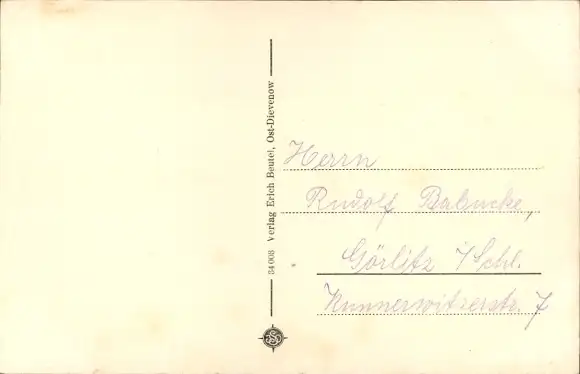 34 008 Verlag Erich Beutel, Ost-Dievenow
Herrn
Rudolf Babucke,
Görlitz i/Schl.
Kunnerwitzerstr. 7